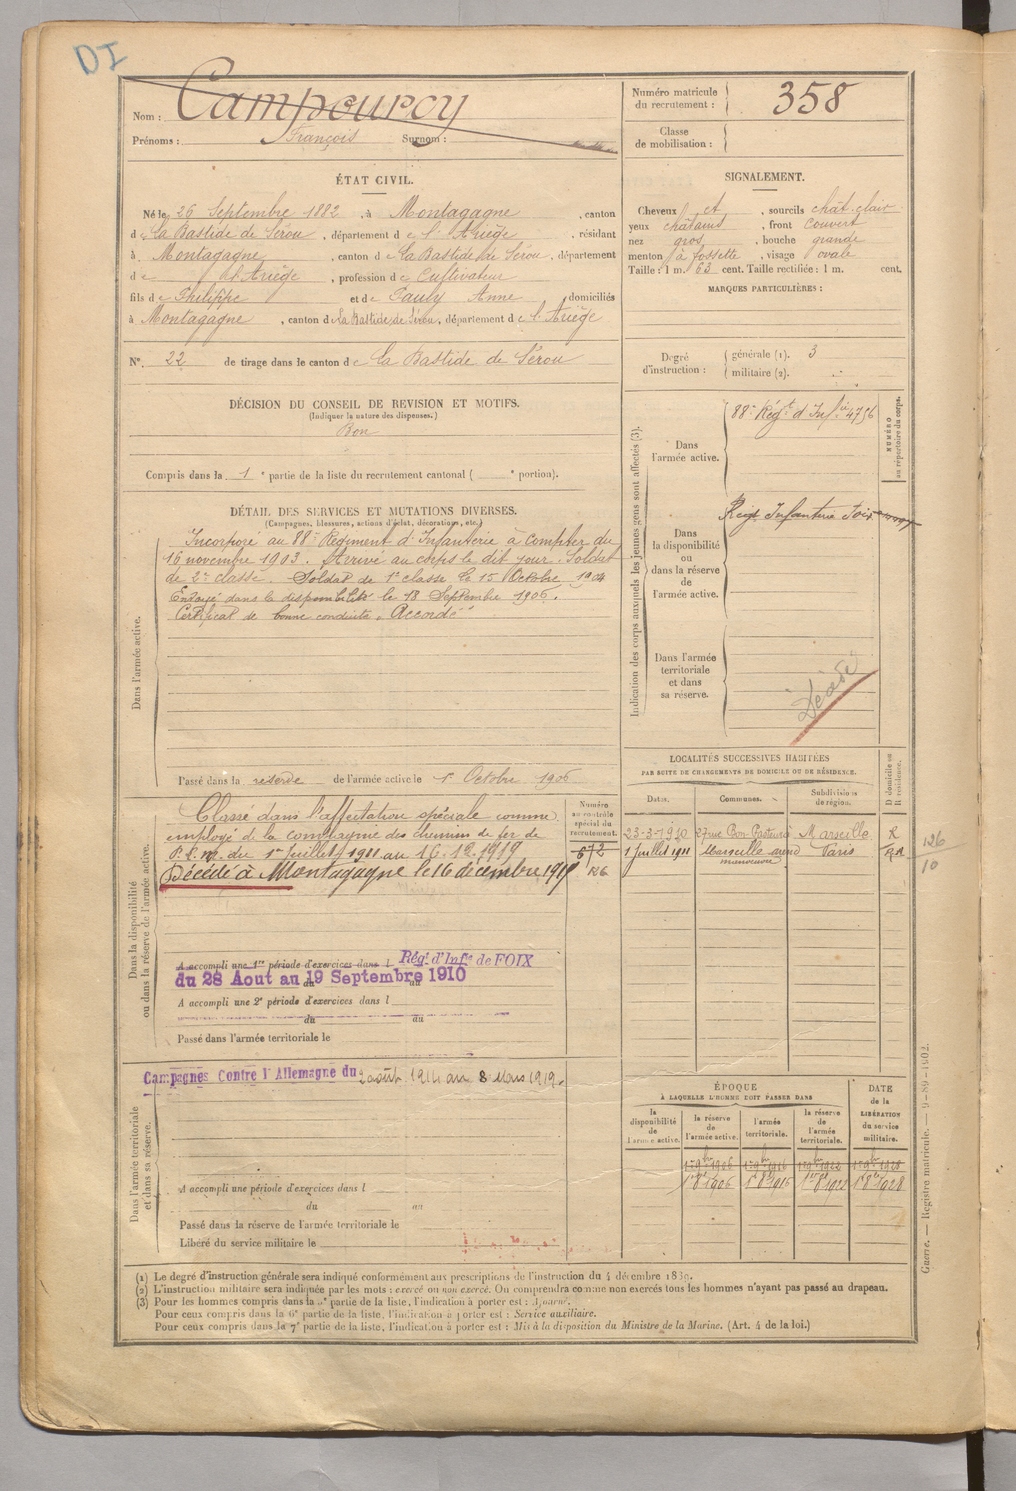 DI
Nom : Campourcy
Prénoms : François Surnom :
Numéro matricule du recrutement : 358
Classe de mobilisation :
ÉTAT CIVIL.
Né le 26 Septembre 1882, à Montagagne, canton
de La Bastide de Sérou, département de l'Ariège, résidant
à Montagagne, canton de La Bastide de Sérou, département
de l'Ariège, profession de Cultivateur
fils de Philippe et de Pauly Anne, domiciliés
à Montagagne, canton de La Bastide de Sérou, département de l'Ariège
N° 22 de tirage dans le canton de La Bastide de Sérou
SIGNALEMENT.
Cheveux et, sourcils chât. clair
yeux châtains, front couvert
nez gros, bouche grande
menton à fossette, visage ovale
Taille : 1 m. 63 cent. Taille rectifiée : 1 m. cent.
MARQUES PARTICULIÈRES :
Degré d'instruction : générale (1). 3
militaire (2).
DÉCISION DU CONSEIL DE REVISION ET MOTIFS.
(Indiquer la nature des dispenses.)
Bon
Compris dans la 1e partie de la liste du recrutement cantonal ( e portion).
DÉTAIL DES SERVICES ET MUTATIONS DIVERSES.
(Campagnes, blessures, actions d'éclat, décorations, etc.)
Dans l'armée active.
Incorporé au 88e Régiment d'Infanterie à compter du
16 novembre 1903. Arrivé au corps le dit jour. Soldat
de 2e classe. Soldat de 1e classe le 15 Octobre 1904
Envoyé dans la disponibilité le 18 Septembre 1906.
Certificat de bonne conduite "Accordé"
Passé dans la réserve de l'armée active le 1er Octobre 1906
Indication des corps auxquels les jeunes gens sont affectés (3).
Dans l'armée active.
88e Régt d'Infie 4756
NUMÉRO au répertoire du corps.
Dans la disponibilité ou dans la réserve de l'armée active.
Regt Infanterie Foix
Dans l'armée territoriale et dans sa réserve.
Décédé
Dans la disponibilité ou dans la réserve de l'armée active.
Classé dans l'affectation spéciale comme
employé de la compagnie des chemins de fer de
P.L.M. du 1er Juillet 1911 au 16.12.1919
Décédé à Montagagne le 16 décembre 1919
Numéro au contrôle spécial du recrutement.
672
126
A accompli une 1re période d'exercices dans l Régt d'Infie de FOIX
du 28 Aout au 19 Septembre 1910
A accompli une 2e période d'exercices dans l
du au
Passé dans l'armée territoriale le
LOCALITÉS SUCCESSIVES HABITÉES
PAR SUITE DE CHANGEMENTS DE DOMICILE OU DE RÉSIDENCE.
Dates. Communes. Subdivisions de région. D domicile ou R résidence.
23-3-1910 27 rue Bon Pasteur Marseille R
1 Juillet 1911 Marseille Paris
126
10
Dans l'armée territoriale et dans sa réserve.
Campagnes Contre l'Allemagne du 2 août 1914 au 8 Mars 1919.
A accompli une période d'exercices dans l
du au
Passé dans la réserve de l'armée territoriale le
Libéré du service militaire le
ÉPOQUE
À LAQUELLE L'HOMME DOIT PASSER DANS
la disponibilité de l'armée active. la réserve de l'armée active. l'armée territoriale. la réserve de l'armée territoriale.
DATE de la LIBÉRATION du service militaire.
1er 9bre 1906 1er 9bre 1916 1er 9bre 1922 1er 9bre 1928
1er 8bre 1906 1er 8bre 1916 1er 8bre 1922 1er 8bre 1928
Guerre. — Registre matricule. — 9-89-1902.
(1) Le degré d'instruction générale sera indiqué conformément aux prescriptions de l'instruction du 4 décembre 1889.
(2) L'instruction militaire sera indiquée par les mots : exercé ou non exercé. On comprendra comme non exercés tous les hommes n'ayant pas passé au drapeau.
(3) Pour les hommes compris dans la partie de la liste, l'indication à porter est :
Pour ceux compris dans la 6e partie de la liste, l'indication à porter est : Service auxiliaire.
Pour ceux compris dans la 7e partie de la liste, l'indication à porter est : Mis à la disposition du Ministre de la Marine. (Art. 4 de la loi.)